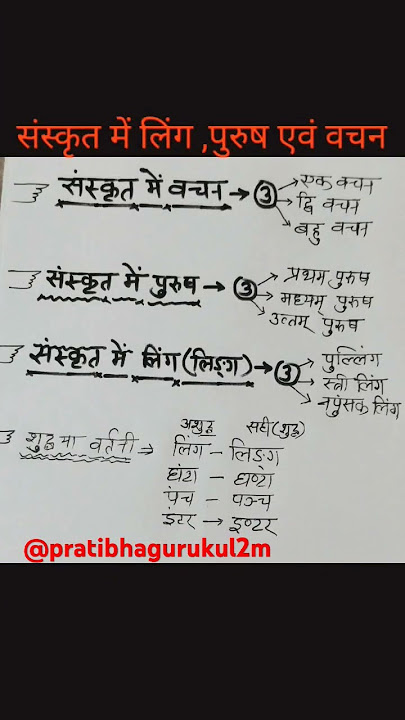 संस्कृत में लिंग ,पुरुष एवं वचन
संस्कृत में वचन → ③ → एक वचन
→ द्वि वचन
→ बहु वचन
संस्कृत में पुरुष → ③ → प्रथम पुरुष
→ मध्यम् पुरुष
→ उत्तम् पुरुष
संस्कृत में लिंग (लिङ्ग) → ③ → पुल्लिंग
→ स्त्री लिंग
→ नपुंसक लिंग
अशुद्ध सही (शुद्ध)
शुद्ध वर्तनी → लिंग – लिङ्ग
घंटा – घण्टा
पंच – पञ्च
इंटर → इण्टर
@pratibhagurukul2m